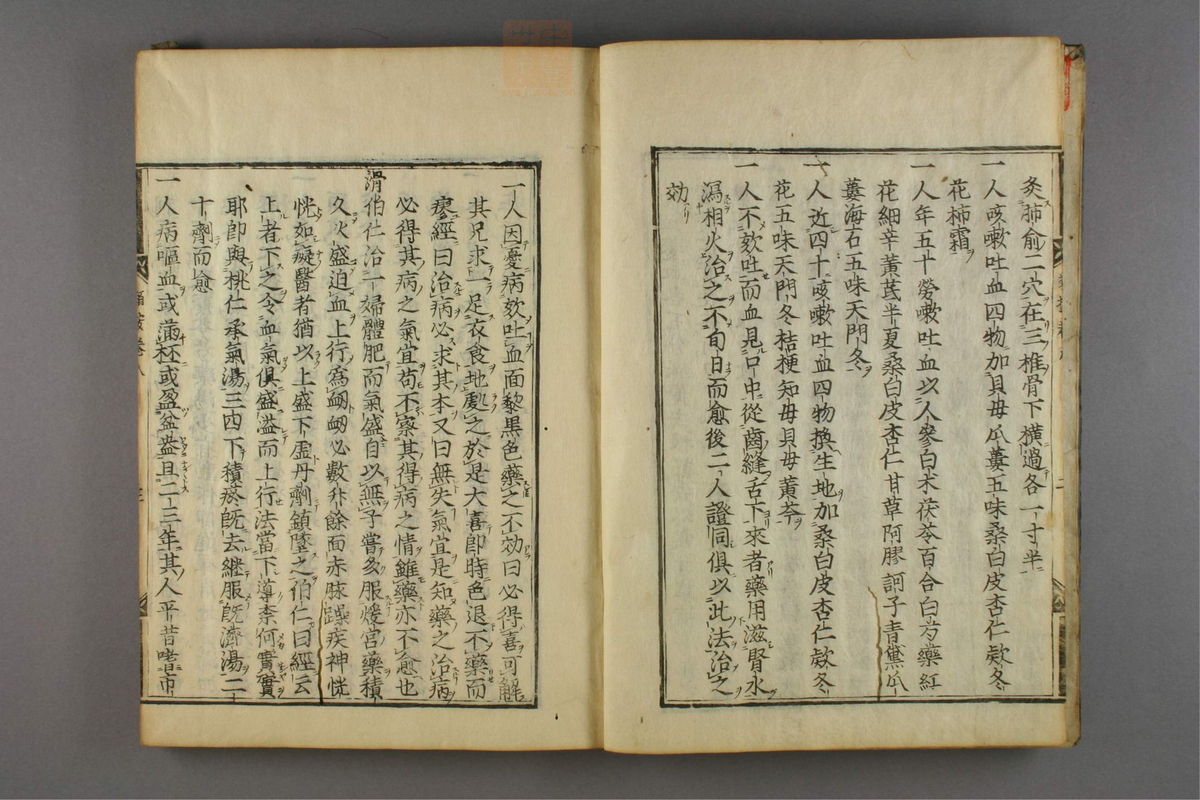 灸肺俞二穴在三椎骨下橫過各一寸半
一人咳嗽吐血四物加貝母瓜蔞五味桑白皮杏仁欵冬
花柿霜
一人年五十勞嗽吐血以人參白朮茯苓百合白芍藥紅
花細辛黃茋半夏桑白皮杏仁甘草阿膠訶子青黛瓜
蔞海石五味天門冬
一人近四十咳嗽吐血四物換生地加桑白皮杏仁欵冬
花五味天門冬桔梗知母貝母黃芩
一人不欬吐而血見口中從齒縫舌下來者藥用滋腎水
瀉相火治之不旬日而愈後二人證同俱以此法治之
効
一人因憂病欬吐血面黎黑色藥之不効曰必得喜可解
其兄求一足衣食地處之於是大喜即時色退不藥而
瘳經曰治病必求其本又曰無失氣宜是知藥之治病
必得其病之氣宜苟不察其得病之情雖藥亦不愈也
滑伯仁治一婦體肥而氣盛自以無子嘗多服煖宮藥積
久火盛迫血上行為衂衂必數升餘面赤脉躁疾神恍
恍如癡醫者猶以上盛下虛丹劑鎮墜之伯仁曰經云
上者下之今血氣俱盛溢而上行法當下導柰何實實
耶即與桃仁承氣湯三四下積瘀既去継服既濟湯二
十劑而愈
一人病嘔血或滿杯或盈盆盎且二三年其人平昔嗜市